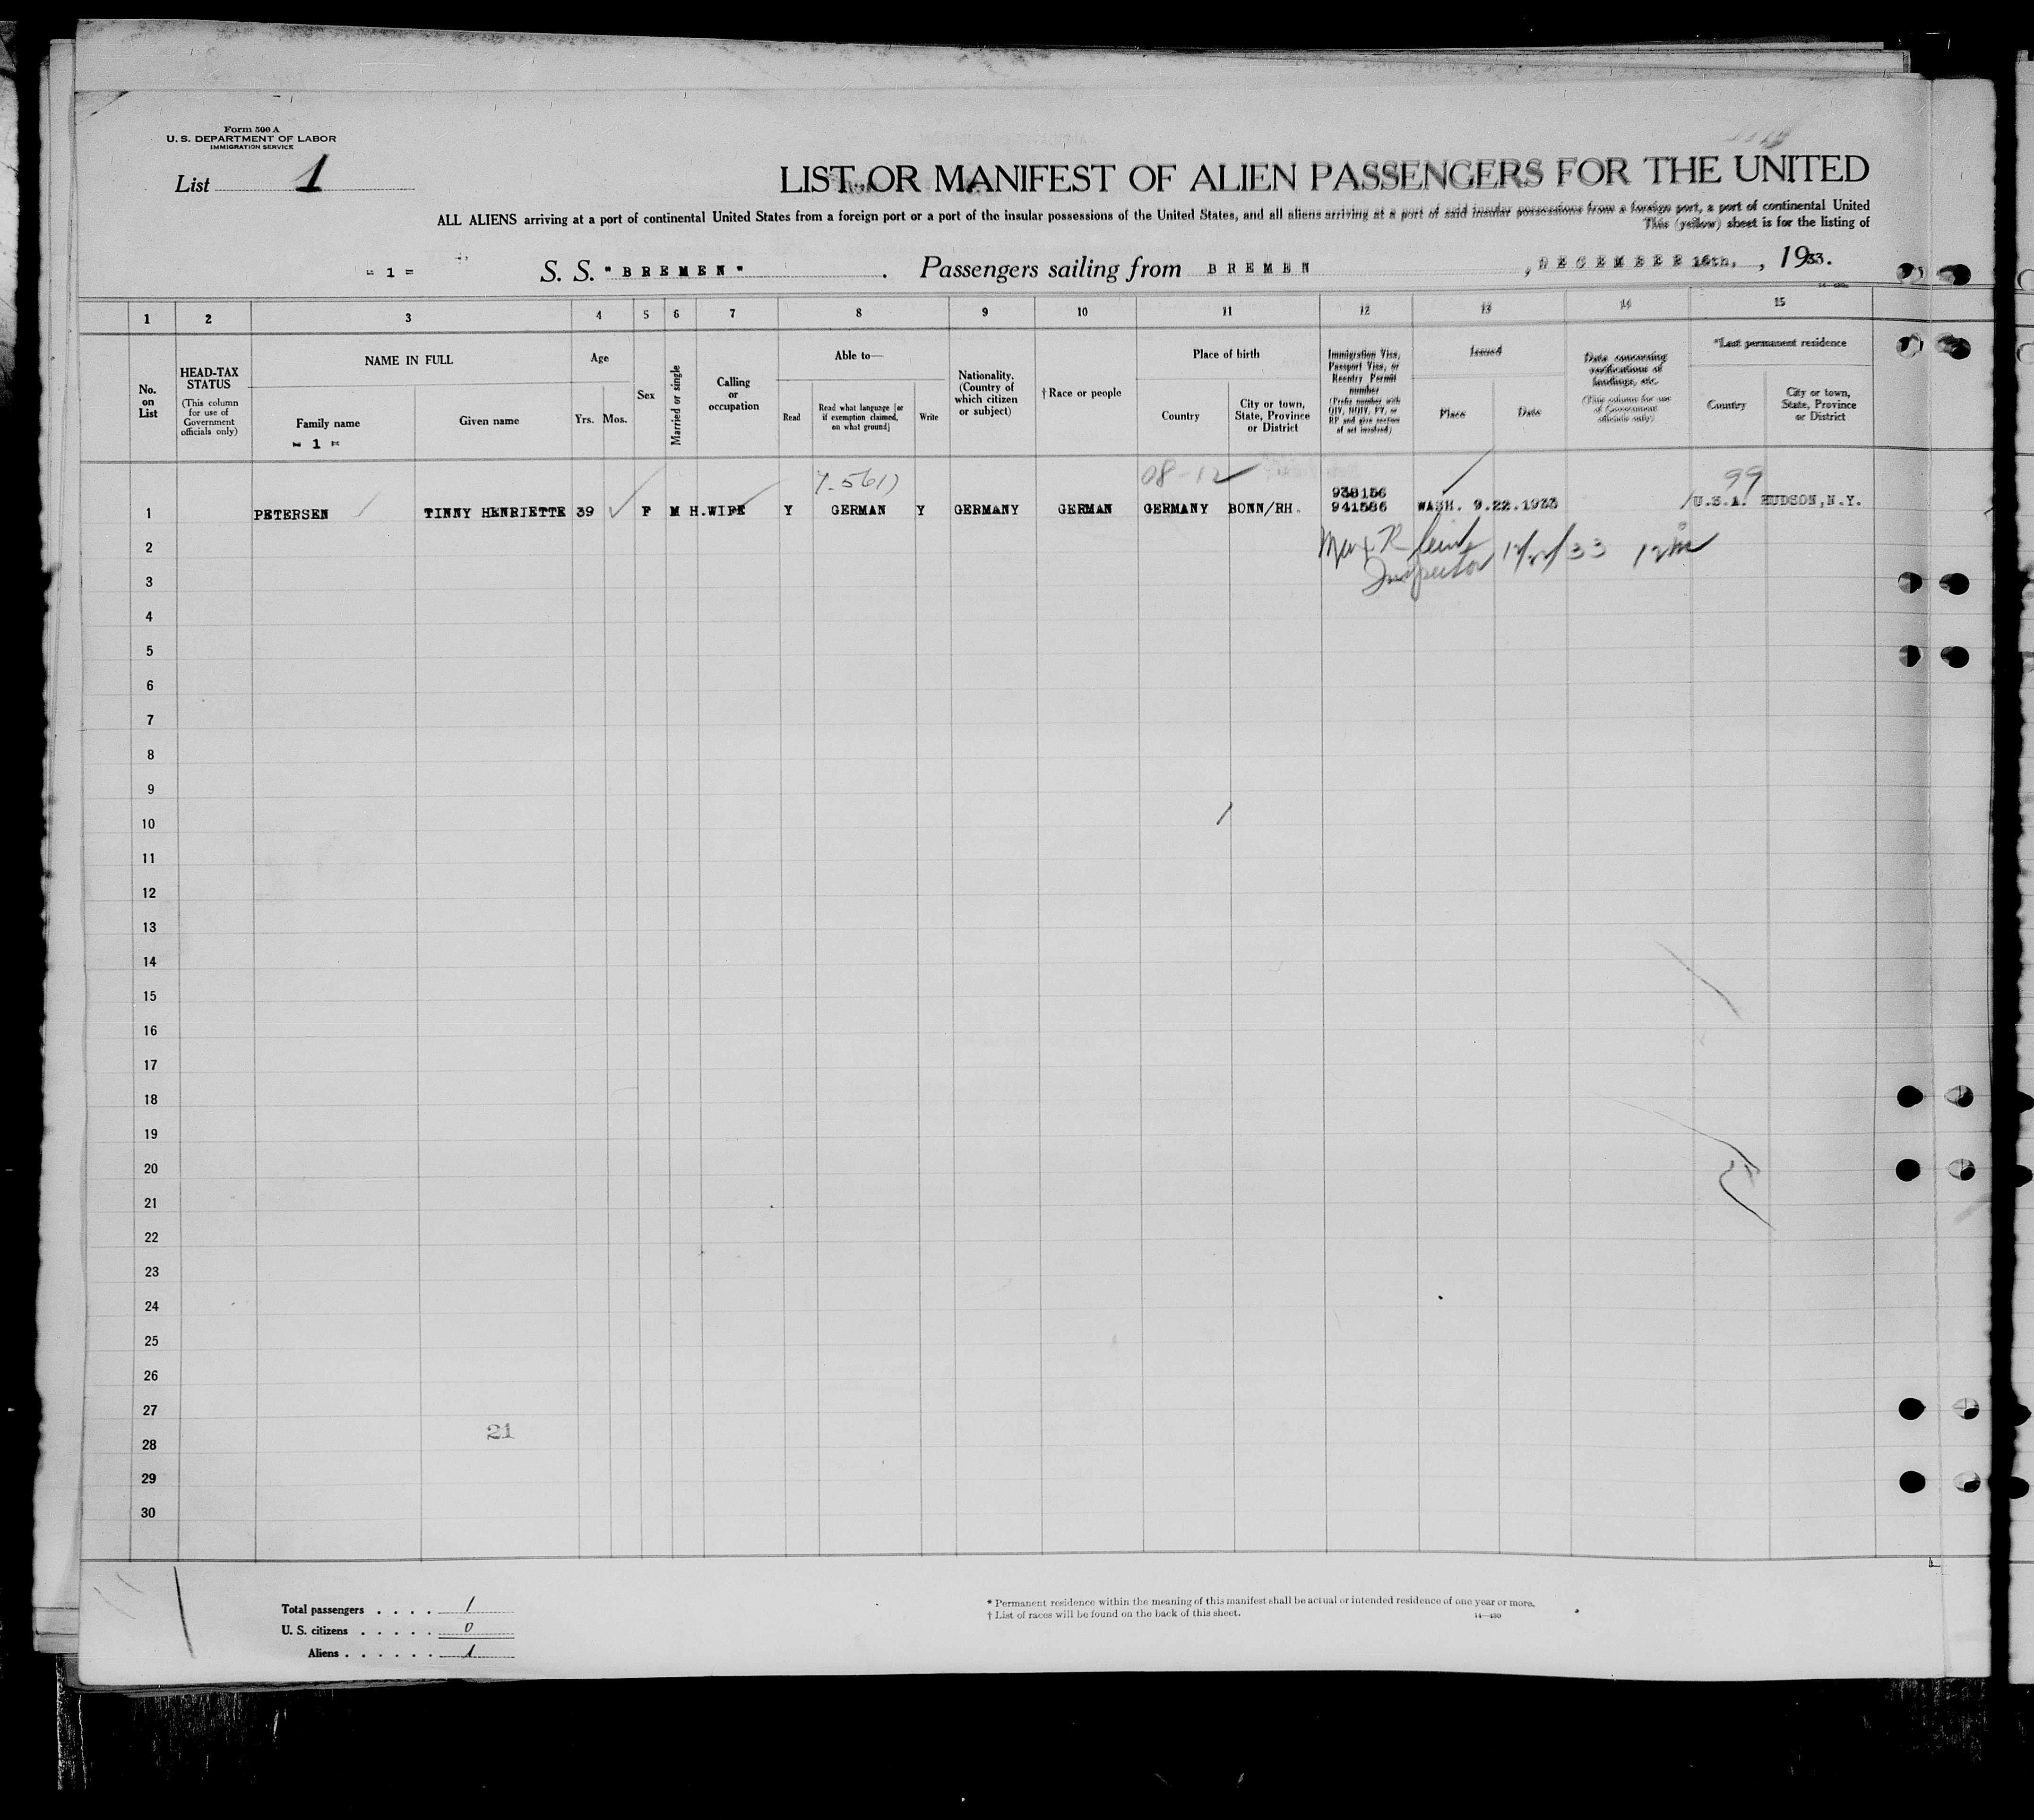 Form 500 A
U. S. DEPARTMENT OF LABOR
IMMIGRATION SERVICE
List 1
LIST OR MANIFEST OF ALIEN PASSENGERS FOR THE UNITED
ALL ALIENS arriving at a port of continental United States from a foreign port or a port of the insular possessions of the United States, and all aliens arriving at a port of said insular possessions from a foreign port, a port of continental United
This (yellow) sheet is for the listing of
- 1 - S. S. "BREMEN" . Passengers sailing from BREMEN , DECEMBER 16th, , 1933.
1 2 3 4 5 6 7 8 9 10 11 12 13 14 15
No. on List
HEAD-TAX STATUS (This column for use of Government officials only)
NAME IN FULL
Family name
- 1 =
Given name
Age
Yrs. Mos.
Sex
Married or single
Calling or occupation
Able to—
Read
Read what language [or if exemption claimed, on what ground]
Write
Nationality. (Country of which citizen or subject)
† Race or people
Place of birth
Country
City or town, State, Province or District
Immigration Visa, Passport Visa, or Reentry Permit number (Prefix number with QIV, NQIV, PV, or RP and give section of act involved)
Issued
Place
Date
Data concerning verifications of landings, etc. (This column for use of Government officials only)
*Last permanent residence
Country
City or town, State, Province or District
08-12 99
938156
1 PETERSEN TINNY HENRIETTE 39 F M H.WIFE Y GERMAN Y GERMANY GERMAN GERMANY BONN/RH. 941586 WASH. 9.22.1933 U.S.A. HUDSON,N.Y.
2
Inspector
3
4
5
6
7
8
9
10
11
12
13
14
15
16
17
18
19
20
21
22
23
24
25
26
27
21
28
29
30
Total passengers . . . . 1
U. S. citizens . . . . . 0
Aliens . . . . . . 1
* Permanent residence within the meaning of this manifest shall be actual or intended residence of one year or more.
† List of races will be found on the back of this sheet. 14—430